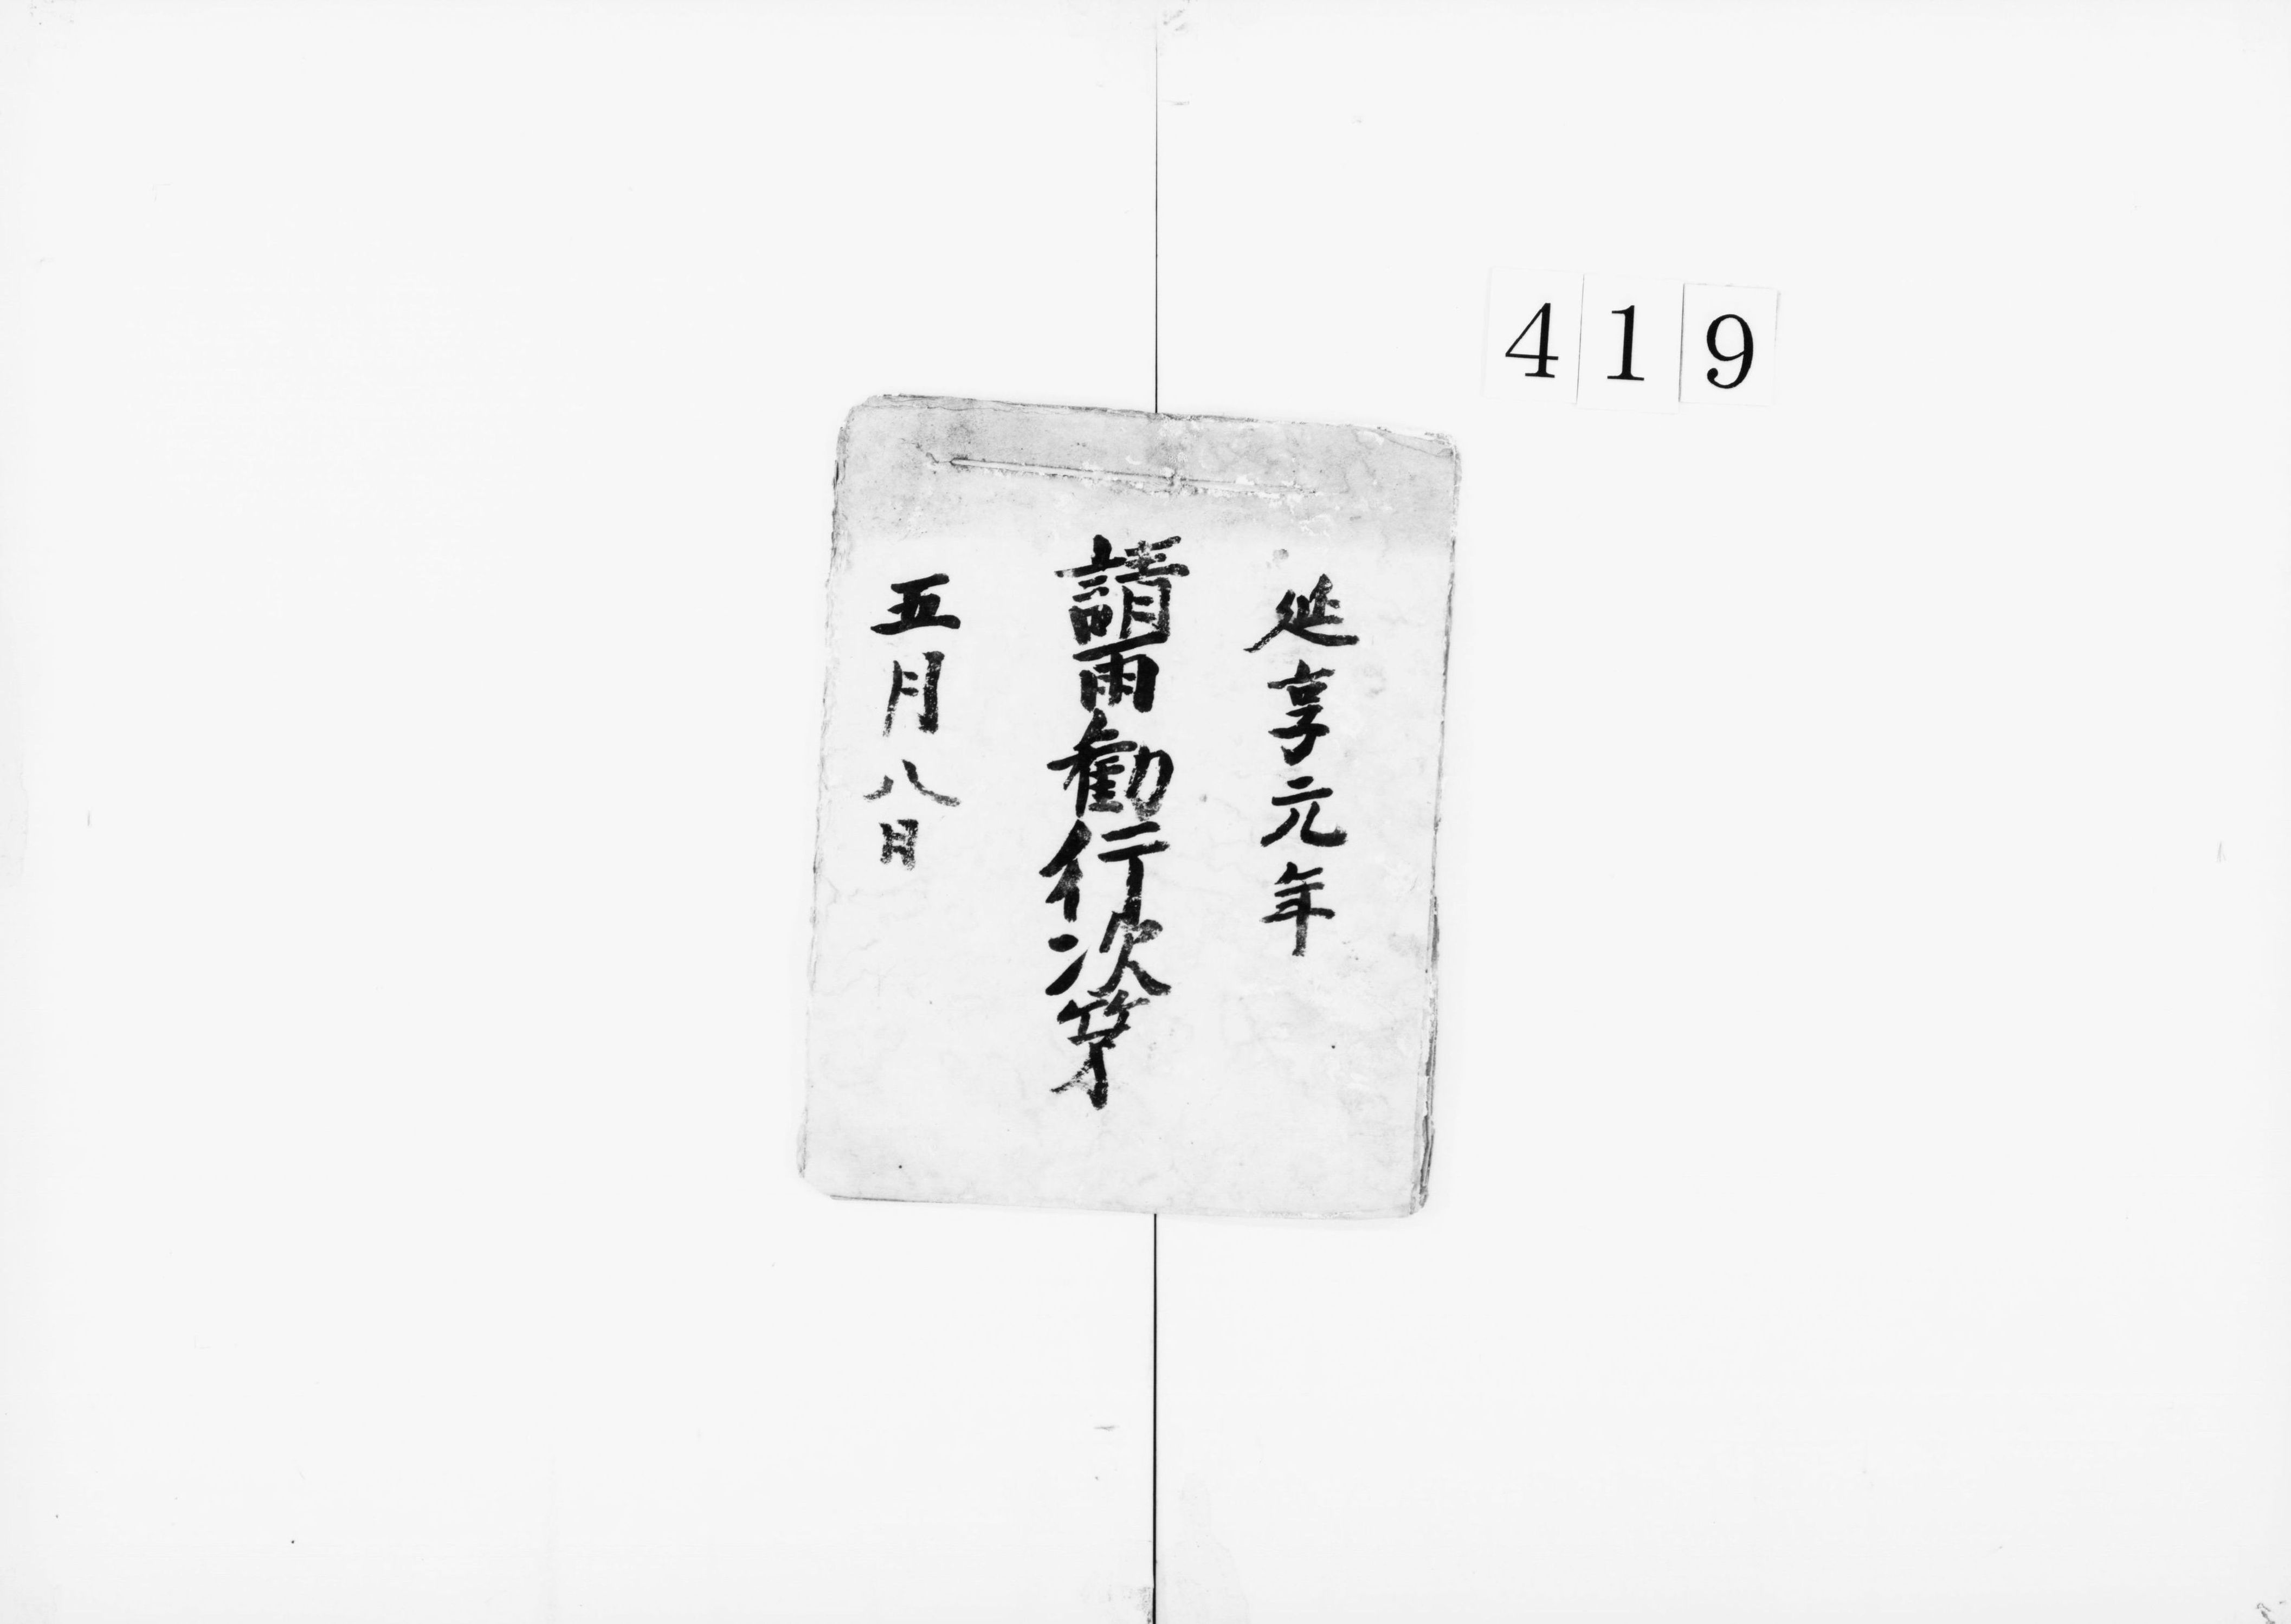 419
延享元年
請雨勸行次第
五月八日